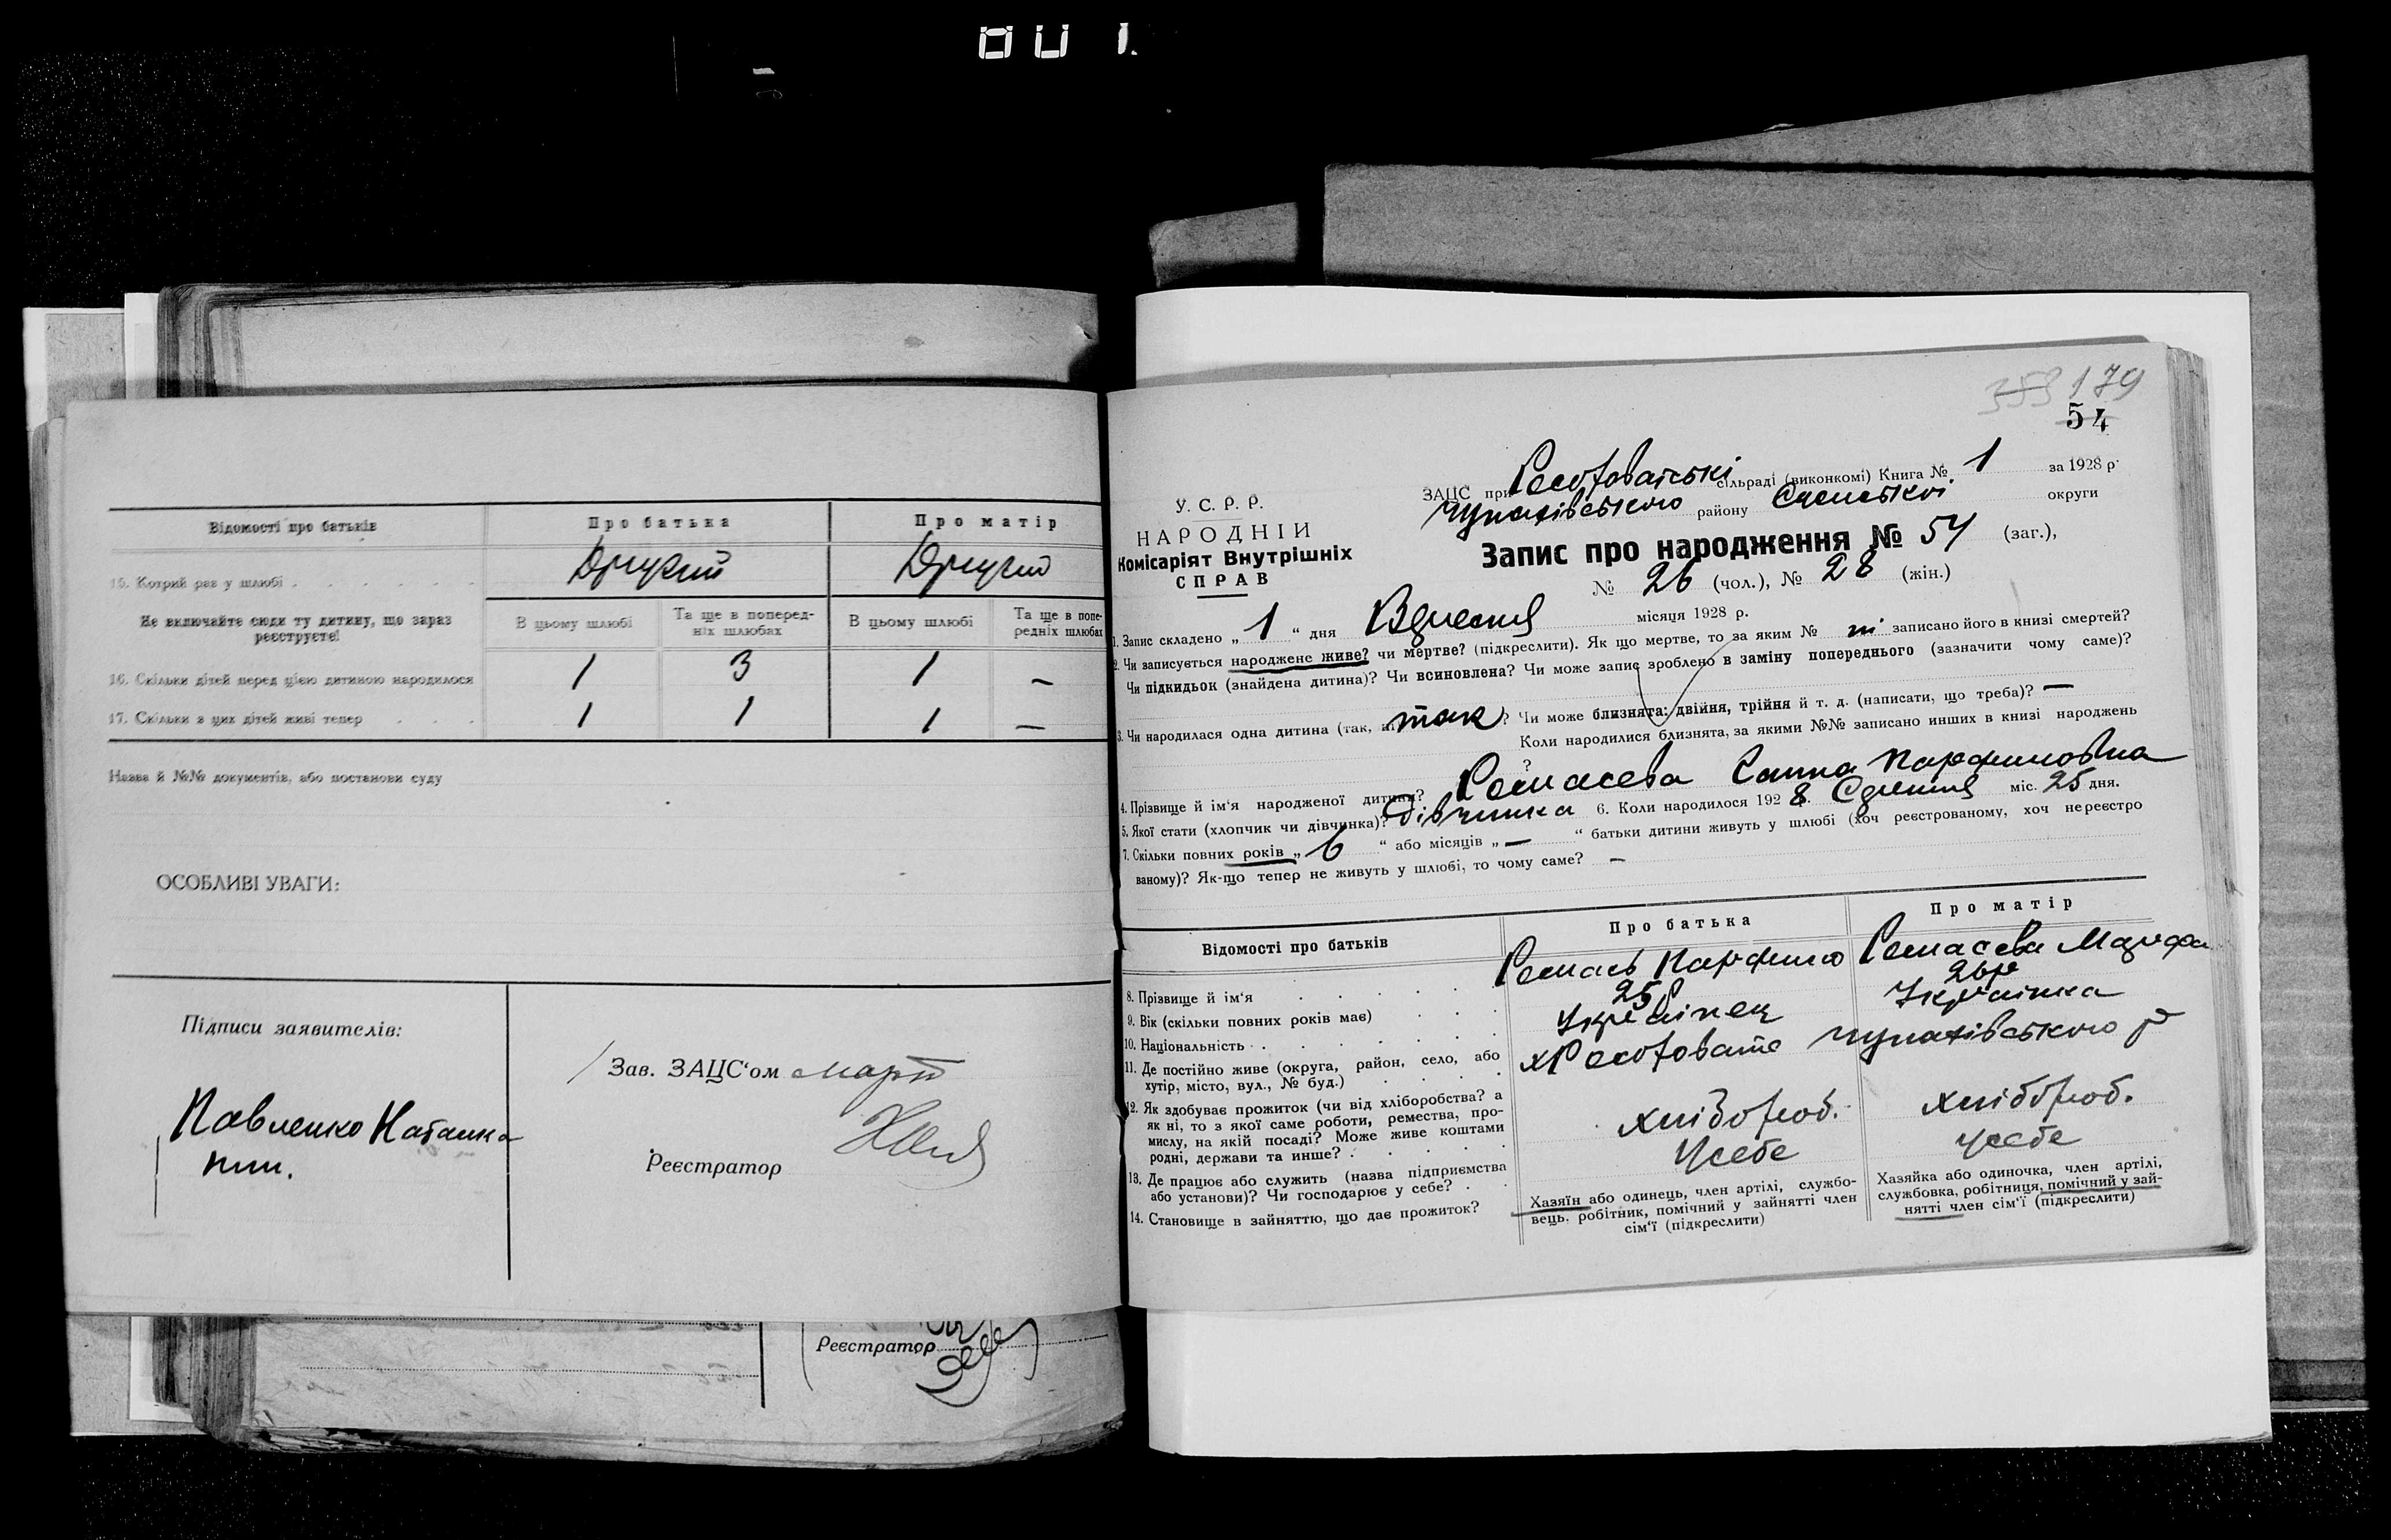 Відомості про батьків
Про батька
Про матір
15. Котрий раз у шлюбі
Другий
Другий
Не включайте сюди ту дитину, що зараз реєструєте!
В цьому шлюбі
Та ще в поперед-
ніх шлюбах
В цьому шлюбі
Та ще в попе-
редніх шлюбах
16. Скільки дітей перед цією дитиною народилося
1
3
1
–
17. Скільки з цих дітей живі тепер
1
1
1
–
Назва й №№ документів, або постанови суду
ОСОБЛИВІ УВАГИ:
Підписи заявителів:
Павленко
Зав. ЗАЦС'ом
Реєстратор
Реєстратор
353 179
54
У. С. Р. Р.
НАРОДНІЙ
Комісаріят Внутрішніх
СПРАВ
ЗАЦС при сільраді (виконкомі) Книга № 1 за 1928 р.
Чупахівського району Сумської округи
Запис про народження № 54 (заг.),
№ 26 (чол.), № 28 (жін.)
1. Запис складено „ 1 “ дня Вдресня місяця 1928 р.
2. Чи записується народжене живе? чи мертве? (підкреслити). Як що мертве, то за яким № ні записано його в книзі смертей?
Чи підкидьок (знайдена дитина)? Чи всиновлена? Чи може запис зроблено в заміну попереднього (зазначити чому саме)?
3. Чи народилася одна дитина (так, ні) так? Чи може близнята: двійня, трійня й т. д. (написати, що треба)? –
Коли народилися близнята, за якими №№ записано инших в книзі народжень
?
4. Прізвище й ім'я народженої дитини? Ганна Парфиновна
5. Якої стати (хлопчик чи дівчинка)? дівчинка 6. Коли народилося 1928. міс. 25 дня.
7. Скільки повних років „ 6 “ або місяців „ – “ батьки дитини живуть у шлюбі (хоч реєстрованому, хоч нереєстро
ваному)? Як-що тепер не живуть у шлюбі, то чому саме? –
Відомості про батьків
Про батька
Про матір
8. Прізвище й ім'я
9. Вік (скільки повних років має)
26р
10. Національність
Українец
Українка
11. Де постійно живе (округа, район, село, або
хутір, місто, вул., № буд.)
Чупахівського р
12. Як здобуває прожиток (чи від хліборобства? а
як ні, то з якої саме роботи, ремества, про-
мислу, на якій посаді? Може живе коштами
родні, держави та инше?
хлібороб.
хлібороб.
13. Де працює або служить (назва підприємства
або установи)? Чи господарює у себе?
Усебе
усебе
14. Становище в зайняттю, що дає прожиток?
Хазяїн або одинець, член артілі, службо-
вець, робітник, помічний у зайнятті член
сім'ї (підкреслити)
Хазяйка або одиночка, член артілі,
службовка, робітниця, помічний у зай-
нятті член сім'ї (підкреслити)